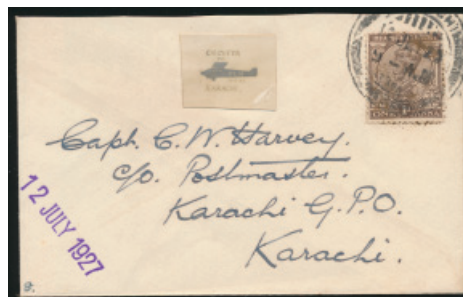 QUETTA
KARACHI
Capt. C. W. Harvey.
c/o. Postmaster.
Karachi G. P. O.
Karachi.
12 JULY 1927